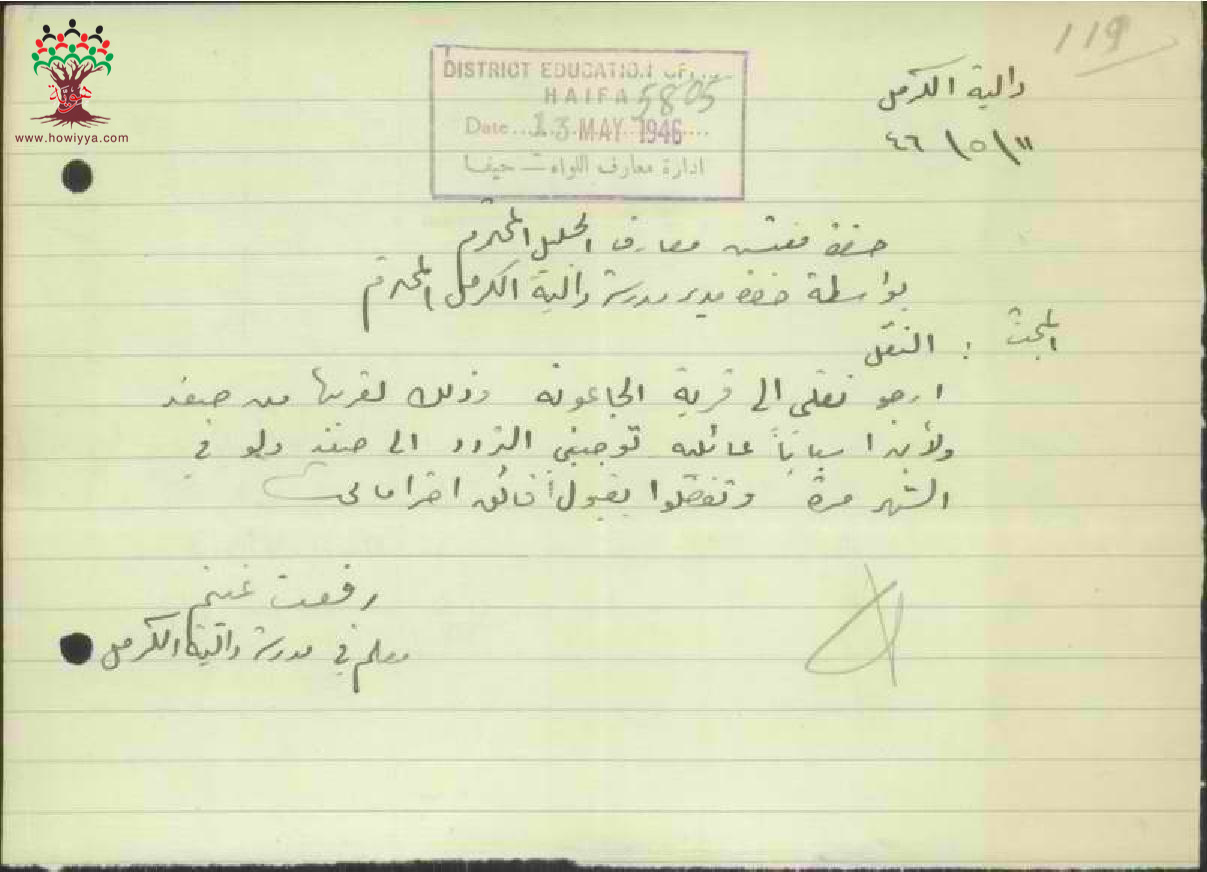 119
هوية
www.howiyya.com
DISTRICT EDUCATION OF
HAIFA 5805
Date 13 MAY 1946
ادارة معارف اللواء – حيفا
دالية الكرمل
١١/٥/٤٦
حضرة مفتش معارف الجليل المحترم
بواسطة حضرة مدير مدرسة دالية الكرمل المحترم
المبحث : النقل
ارجو نقلي الى قرية الجاعونه وذلك لقربها من صفد
ولأن اسباباً عائليه توجبني التردد الى صفد ولو في
الشهر مرة وتفضلوا بقبول فائق احتراماتي
رفعت غنيم
معلم في مدرسة دالية الكرمل